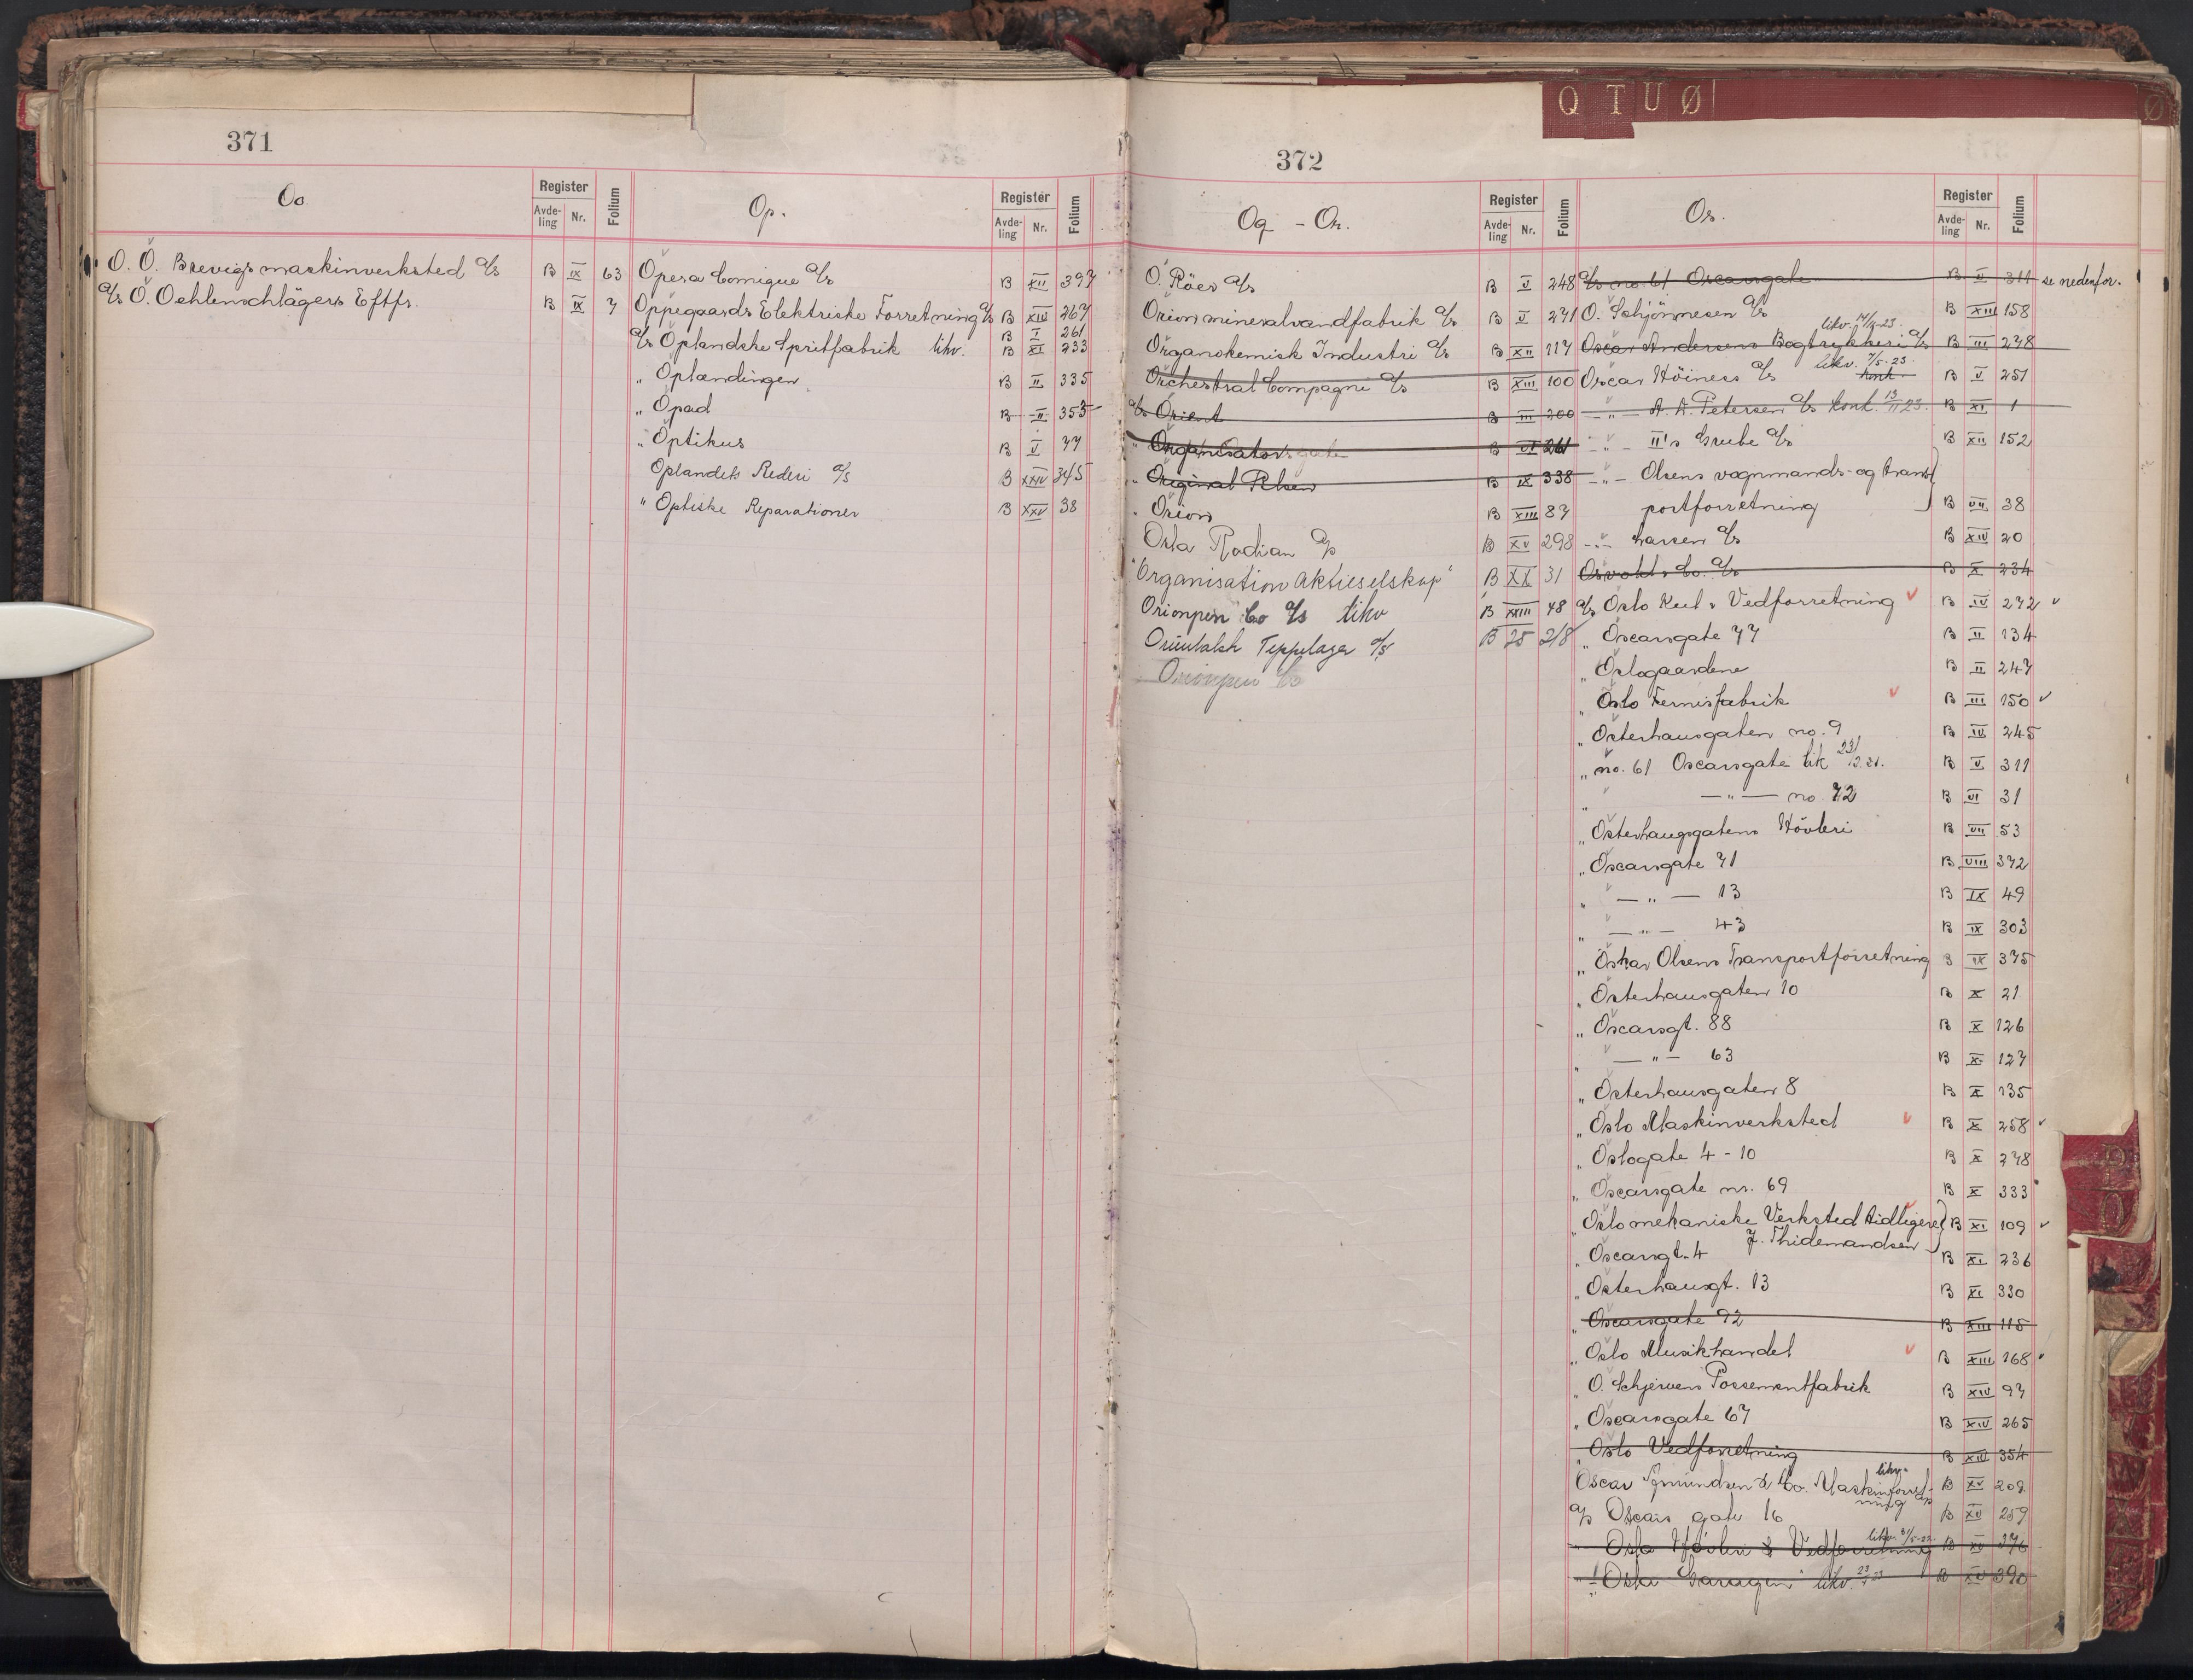 Q T U Ø
Ø
371
Oo
Register
Avde-
ling
Nr.
Folium
O. Ö. Brevigs maskinverksted A/s B IX 63
A/s O. Oehlenschlägers Eftfs. B IX 7
Op.
Register
Avde-
ling
Nr.
Folium
Opera Comique A/s B XII 397
Oppegaards Elektriske Forretning A/s B XIII 267
B I 261
A/s Oplandske Spritfabrik likv. B XI 233
" Oplændingen B II 335
" Opad B II 353
" Optikus B V 77
Oplandets Rederi A/S B XXIV 345
" Optiske Reparationer B XXV 38
372
Oq - Or.
Register
Avde-
ling
Nr.
Folium
O. Röer A/s B V 248
Orion mineralvandfabrik A/s B V 271
Organokemisk Industri A/s B XII 117
Orchestral Compagni A/s B XIII 100
A/s Orient B III 200
" Organisator B VI 261
" Original Pelsen B IX 338
" Orion B XIII 87
Orla Rodian A/s B XV 298
"Organisation Aktieselskap" B XX 31
Orionpen Co A/s likv B XXIII 48
Orientalsk Teppelager A/S B 25 218
Orionpen Co
Os.
Register
Avde-
ling
Nr.
Folium
A/s no. 61 Oscarsgate B V 311 se nedenfor.
O. Schjönnesen A/s B XIII 158
likv.
Oscar Andersens Bogtrykkeri A/s B III 278
likv. 7/5-23.
Oscar Höiness A/s konk. B V 251
— " — A. A. Petersen A/s konk. 13/11 23. B XI 1
— " — II's Grube A/s B XII 152
— " — Olsens vognmands- og trans-
portforretning B VII 38
— " — Larsen A/s B XIV 20
Osvold & Co. A/s B X 234
A/s Oslo Kul & Vedforretning B IV 272
" Oscarsgate 77 B II 134
" Oslogaardene B II 247
" Oslo Fernisfabrik B III 150
" Osterhausgaten no. 9 B IV 245
" no. 61 Oscarsgate lik 23/12.21. B V 311
" — " — no. 72 B VI 31
" Osterhausgatens Hövleri B VII 53
" Oscarsgate 71 B VIII 372
" — " — 13 B IX 49
" — " — 43 B IX 303
" Oskar Olsens Transportforretning B IX 375
" Osterhausgaten 10 B X 21
" Oscarsgt. 88 B X 126
" — " — 63 B X 127
" Osterhausgaten 8 B X 135
" Oslo Maskinverksted B X 258
" Oslogate 4 - 10 B X 278
" Oscarsgate nr. 69 B X 333
" Oslo mekaniske Verksted tidligere B XI 109
J. Thidemandsen
" Oscarsgt. 4 B XI 236
" Osterhausgt. 13 B XI 330
" Oscarsgate 92 B XIII 115
" Oslo Musikhandel B XIII 168
" O. Schjervens Possementfabrik B XIV 97
" Oscarsgate 67 B XIV 265
" Oslo Vedforretning B XIV 354
likv.
Oscar Amundsen & Co. Maskinforret- B XV 209
ning A/s
A/s Oscars gate 16 B XV 259
" Oslo Hövleri & Vedforretning likv. B XV 376
" Oslo Garagen likv. B XV 390